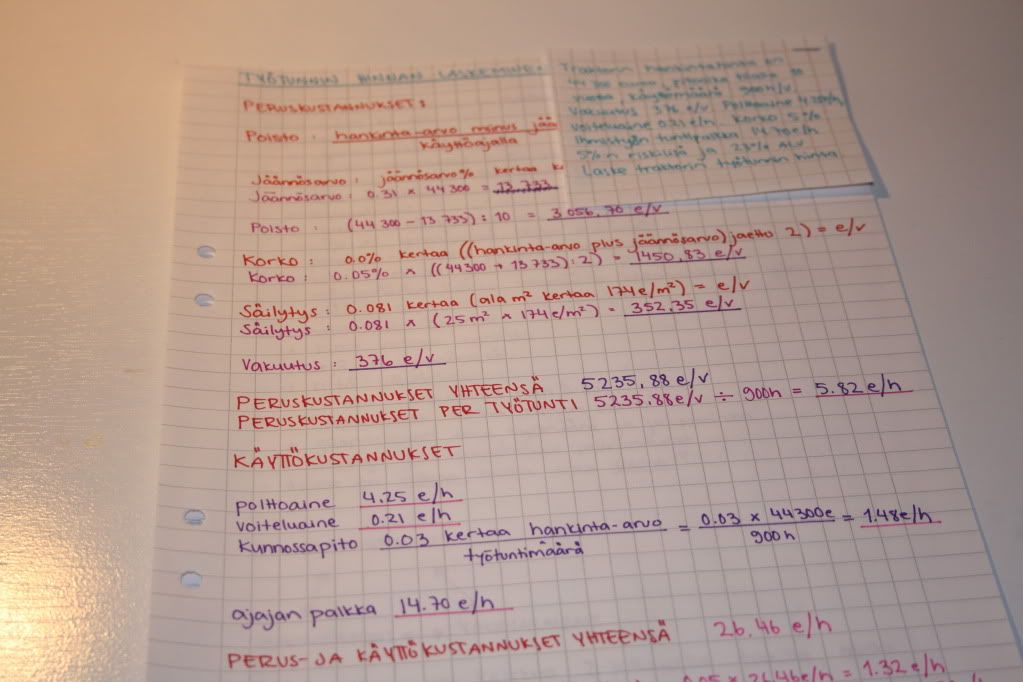 TYÖTUNNIN HINNAN LASKEMINEN
Traktorin hankintahinta on
44 300 euroa,
vuotta, käyttömäärä 900 h/v
Vakuutus 376 e/v. Polttoaine 4.25e/h
voiteluaine 0.21 e/h. Korko 5%
Ihmistyön tuntipalkka 14.70e/h
5%:n riskilisä ja 23% ALV
Laske traktorin työtunnin hinta
PERUSKUSTANNUKSET:
Poisto : hankinta-arvo miinus jää
käyttöajalla
Jäännösarvo : jäännösarvo% kertaa
Jäännösarvo : 0.31 × 44 300 = 13 733
Poisto : (44 300 - 13 733) : 10 = 3 056,70 e/v
Korko : 0.0% kertaa ((hankinta-arvo plus jäännösarvo) jaettu 2) = e/v
Korko : 0.05% × ((44300 + 13 733) : 2) = 1450,83 e/v
Säilytys : 0.081 kertaa (ala m² kertaa 174e/m²) = e/v
Säilytys : 0.081 × (25m² × 174e/m²) = 352,35 e/v
Vakuutus : 376 e/v
PERUSKUSTANNUKSET YHTEENSÄ 5235,88 e/v
PERUSKUSTANNUKSET PER TYÖTUNTI 5235.88e/v ÷ 900h = 5.82 e/h
KÄYTTÖKUSTANNUKSET
polttoaine 4.25 e/h
voiteluaine 0.21 e/h
kunnossapito 0.03 kertaa hankinta-arvo = 0.03 × 44300e = 1.48e/h
työtuntimäärä 900h
ajajan palkka 14.70 e/h
PERUS- JA KÄYTTÖKUSTANNUKSET YHTEENSÄ 26.46 e/h
0.05 × 26.46e/h = 1.32 e/h